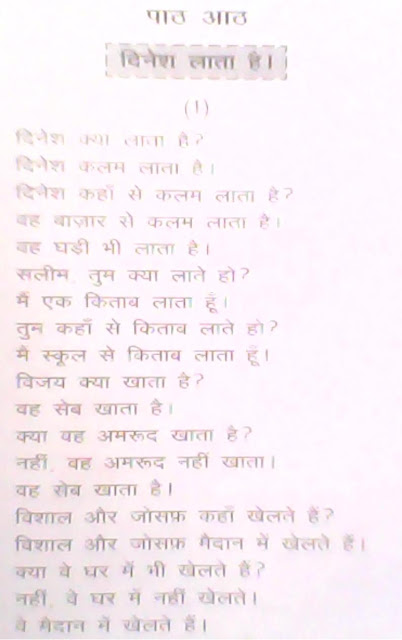 पाठ आठ
दिनेश लाता है।
(1)
दिनेश क्या लाता है?
दिनेश कलम लाता है।
दिनेश कहाँ से कलम लाता है?
वह बाज़ार से कलम लाता है।
वह घड़ी भी लाता है।
सलीम, तुम क्या लाते हो?
मैं एक किताब लाता हूँ।
तुम कहाँ से किताब लाते हो?
मैं स्कूल से किताब लाता हूँ।
विजय क्या खाता है?
वह सेब खाता है।
क्या वह अमरूद खाता है?
नहीं, वह अमरूद नहीं खाता।
वह सेब खाता है।
विशाल और जोसफ़ कहाँ खेलते हैं?
विशाल और जोसफ़ मैदान में खेलते हैं।
क्या वे घर में भी खेलते हैं?
नहीं, वे घर में नहीं खेलते।
वे मैदान में खेलते हैं।